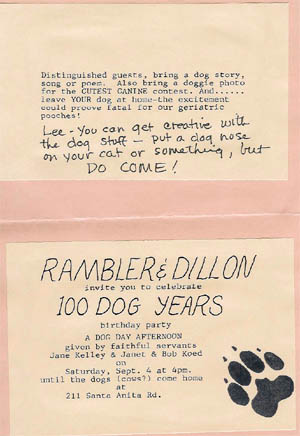 Distinguished guests, bring a dog story,
song or poem. Also bring a doggie photo
for the CUTEST CANINE contest. And......
leave YOUR dog at home-the excitement
could proove fatal for our geriatric
pooches!
Lee - You can get creative with
the dog stuff - put a dog nose
on your cat or something, but
DO COME!
RAMBLER & DILLON
invite you to celebrate
100 DOG YEARS
birthday party
A DOG DAY AFTERNOON
given by faithful servants
Jane Kelley & Janet & Bob Koed
on
Saturday, Sept. 4 at 4pm.
until the dogs (cows?) come home
at
211 Santa Anita Rd.